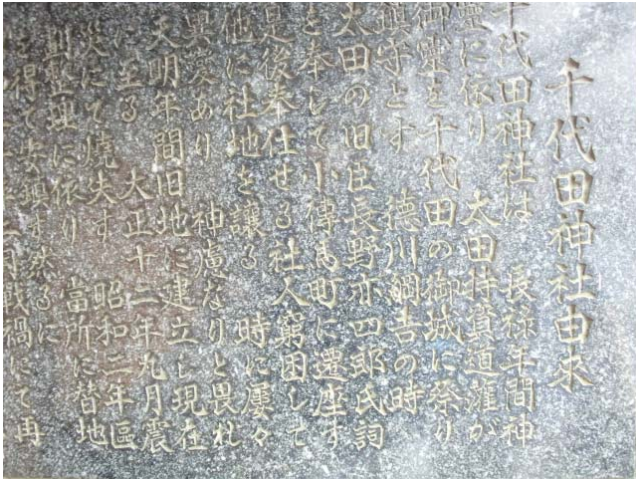 千代田神社由来
千代田神社は 長禄年間神
靈に依り 太田持資道灌が
御靈を千代田の御城に祭り
鎮守とす 徳川綱吉の時
太田の旧臣長野亦四郎氏詞
を奉じて小傳馬町に遷座す
是後奉仕せる社人窮困して
他に社地を讓る 時に屡々
異變あり 神慮なりと畏れ
天明年間旧地に建立し現在
に至る 大正十二年九月震
災にて焼失す 昭和二年區
劃整理に依り 當所に替地
を得て安鎮す然るに
月戦禍にて再